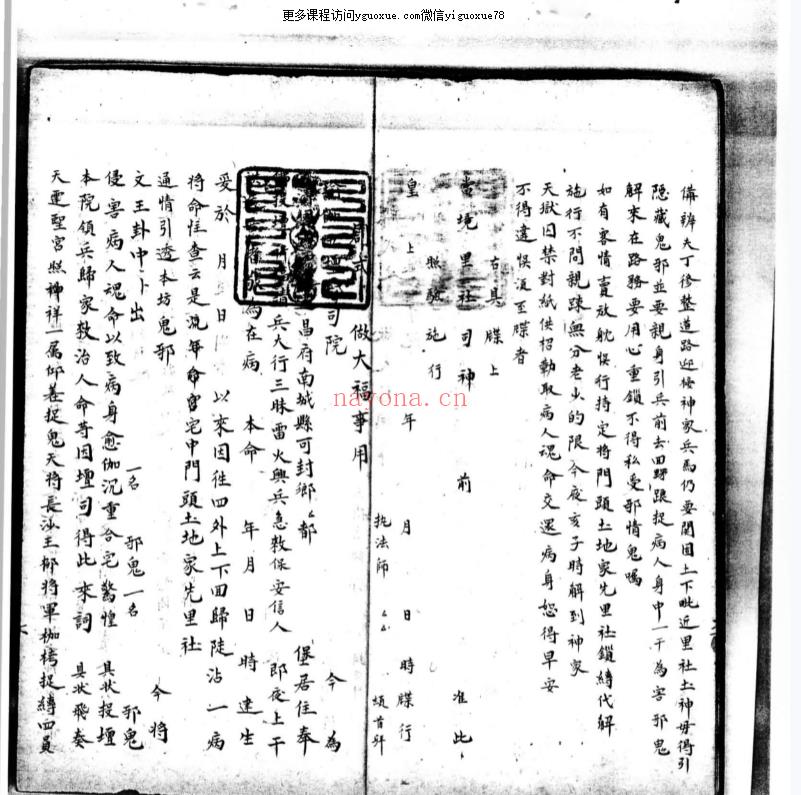 更多课程访问yguoxue.com微信yiguoxue78
備辨夫丁修整道路迎接神家兵馬仍要関固上下毗近里社土神毋得引
隐藏鬼邪並要親身引兵前去四野跟捉病人身中一干為害邪鬼
解來在路務要用心重鎖不得私受邪情鬼囑
如有容情賣放躭悮行持定将門頭土地家先里社鎖縛代解
施行不問親踈無分老少的限今夜亥子時解到神家
天獄囚禁對紙供招勒取病人魂命交還病身恕得早安
不得違悮湏至牒者
右具牒上
當境里社司神前准此
照驗施行
皇上年月日時牒行
执法師 頓首拜
做大福事用
司院今為
昌府南城縣可封鄉都堡居住奉
兵大行三昧雷火興兵急救保安信人即夜上干
為在病本命年月日時建生
受於月日以來因徃四外上下回歸陡沾一病
将命恠查云是流年命宫宅中門頭土地家先里社
通情引透本坊鬼邪今将
文王卦中卜出一名邪鬼一名邪鬼
侵害病人魂命以致病身愈加沉重合宅驚惶具状投壇
本院領兵歸家救治人命等因壇司得此來詞具状飛奏
天運聖宫照神祥一屬仰差捉鬼天将長沙王栁将軍枷栲捉縛四員
nayona.cn